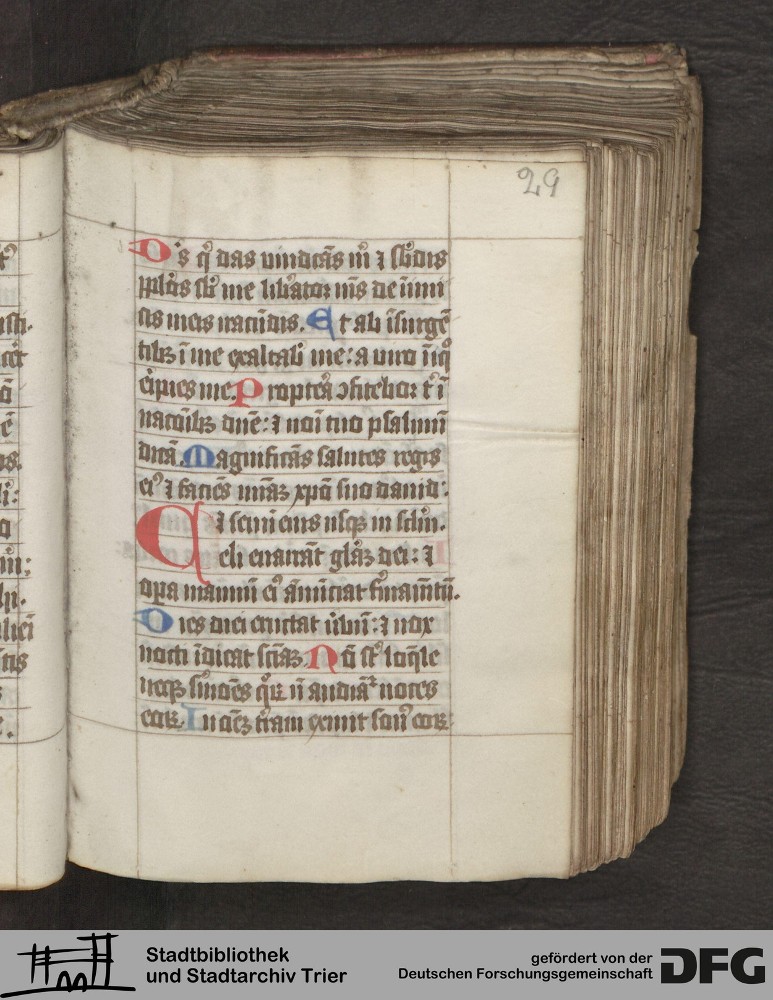 29
D's q͛ das vindictãs m̃ ⁊ sb̃dis
pp̃los sb̃ me lib̃ator mẽs de inimi
cis meis iracũdis. Et ab ĩsurgẽ
tibꝫ ĩ me exaltab̃ me: a viro ĩiq͛
ẽipies me. Propteã ↄfitebor tĩ ĩ
nacõibꝫ dñe: ⁊ noĩ tuo psalmũ
dicã. Magnificãs salutes regis
ei⁹ ⁊ faciẽs mĩaꝫ xpõ suo dauid:
⁊ semĩ eius usqꝫ in sclm̃.
Celi enarrãt glãꝫ dei: ⁊
opa manuũ ei⁹ ãnũciat firmamẽtũ.
Dies diei eructat ũbũ: ⁊ nox
nocti ĩdicat sciãꝫ. Nõ st̃ loq̃le
neqꝫ s̃mões q͛ꝝ ñ audiãt̃ uoces
eoꝝ. In oẽꝫ t̃ram exiuit son⁹ eoꝝ:
Stadtbibliothek
und Stadtarchiv Trier
gefördert von der
Deutschen Forschungsgemeinschaft
DFG